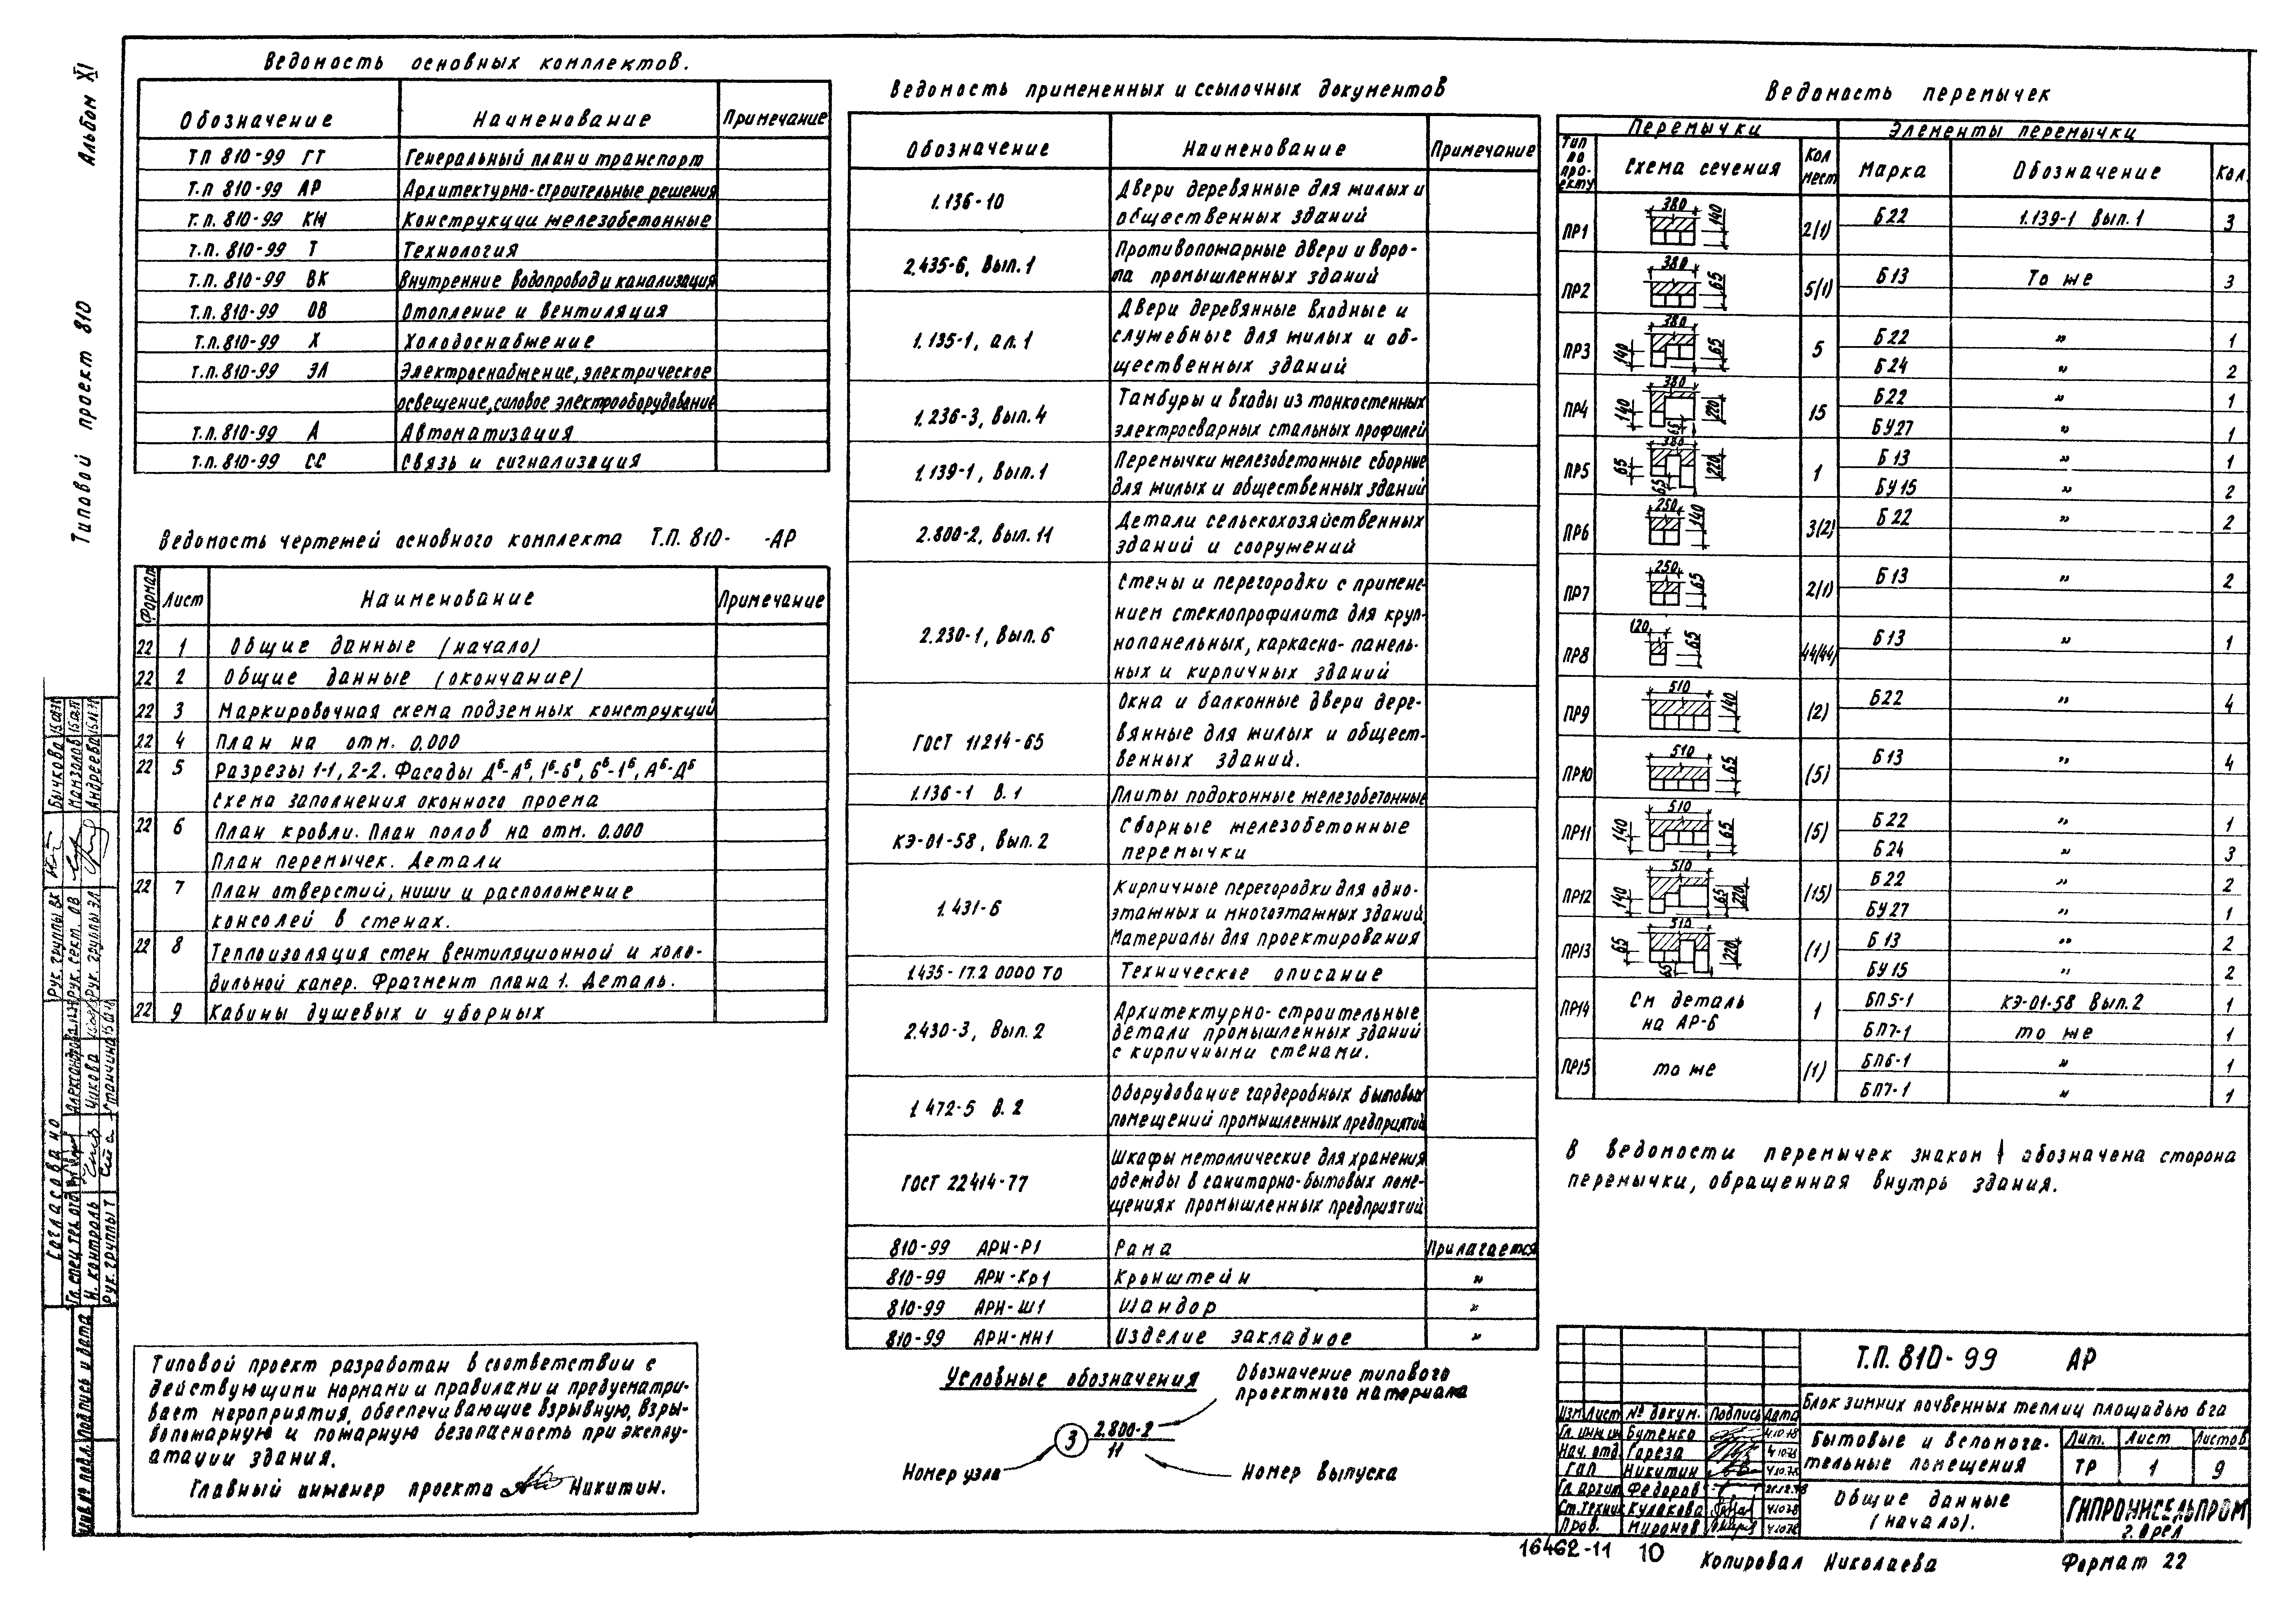 Альбом XI
Типовой проект 810
Ведомость основных комплектов.
Обозначение Наименование Примечание
ТП 810-99 ГТ Генеральный план и транспорт
Т.п. 810-99 АР Архитектурно-строительные решения
Т.п. 810-99 КЖ Конструкции железобетонные
Т.п. 810-99 Т Технология
Т.п. 810-99 ВК Внутренние водопровод и канализация
Т.п. 810-99 ОВ Отопление и вентиляция
Т.п. 810-99 Х Холодоснабжение
Т.п. 810-99 ЭЛ Электроснабжение, электрическое
освещение, силовое электрооборудование
Т.п. 810-99 А Автоматизация
Т.п. 810-99 СС Связь и сигнализация
Ведомость чертежей основного комплекта Т.П. 810- -АР
Формат Лист Наименование Примечание
22 1 Общие данные (начало)
22 2 Общие данные (окончание)
22 3 Маркировочная схема подземных конструкций
22 4 План на отм. 0.000
22 5 Разрезы 1-1, 2-2. Фасады
Схема заполнения оконного проема
22 6 План кровли. План полов на отм. 0.000
План перемычек. Детали
22 7 План отверстий, ниши и расположение
консолей в стенах.
22 8 Теплоизоляция стен вентиляционной и холо-
дильной камер. Фрагмент плана 1. Деталь.
22 9 Кабины душевых и уборных
Типовой проект разработан в соответствии с
действующими нормами и правилами и предусматри-
вает мероприятия, обеспечивающие взрывную, взры-
вопожарную и пожарную безопасность при эксплу-
атации здания.
Главный инженер проекта Никитин.
Ведомость примененных и ссылочных документов
Обозначение Наименование Примечание
1.136-10 Двери деревянные для жилых и
общественных зданий
2.435-6, Вып.1 Противопожарные двери и воро-
та промышленных зданий
1.135-1, ал.1 Двери деревянные входные и
служебные для жилых и об-
щественных зданий
1.236-3, Вып.4 Тамбуры и входы из тонкостенных
электросварных стальных профилей
1.139-1, Вып.1 Перемычки железобетонные сборные
для жилых и общественных зданий
2.800-2, Вып.11 Детали сельскохозяйственных
зданий и сооружений
2.230-1, Вып.6 Стены и перегородки с примене-
нием стеклопрофилита для круп-
нопанельных, каркасно-панель-
ных и кирпичных зданий
ГОСТ 11214-65 Окна и балконные двери дере-
вянные для жилых и общест-
венных зданий.
1.136-1 В.1 Плиты подоконные железобетонные
КЭ-01-58, Вып.2 Сборные железобетонные
перемычки
1.431-6 Кирпичные перегородки для одно-
этажных и многоэтажных зданий
Материалы для проектирования
1.435-17.2 0000 ТО Техническое описание
2.430-3, Вып.2 Архитектурно-строительные
детали промышленных зданий
с кирпичными стенами.
1.472-5 В.2 Оборудование гардеробных бытовых
помещений промышленных предприятий
ГОСТ 22414-77 Шкафы металлические для хранения
одежды в санитарно-бытовых поме-
щениях промышленных предприятий
810-99 АРИ-Р1 Рама Прилагается
810-99 АРИ-Кр1 Кронштейн "
810-99 АРИ-Ш1 Шандор "
810-99 АРИ-МН1 Изделие закладное "
Условные обозначения
Обозначение типового
проектного материала
3 2.800-2
11
Номер узла
Номер выпуска
Ведомость перемычек
Перемычки Элементы перемычки
Тип по про-екту Схема сечения Кол мест Марка Обозначение Кол.
ПР1 380 140 2(1) Б22 1.139-1 Вып.1 3
ПР2 380 65 5(1) Б13 То же 3
ПР3 140 380 65 5 Б22 " 1
Б24 " 2
ПР4 140 380 65 220 15 Б22 " 1
БУ27 " 1
ПР5 65 380 65 220 1 Б13 " 1
БУ15 " 2
ПР6 250 140 3(2) Б22 " 2
ПР7 250 65 2(1) Б13 " 2
ПР8 120 65 44(44) Б13 " 1
ПР9 510 140 (2) Б22 " 4
ПР10 510 65 (5) Б13 " 4
ПР11 140 510 65 (5) Б22 " 1
Б24 " 3
ПР12 140 510 65 220 (15) Б22 " 2
БУ27 " 1
ПР13 65 510 65 220 (1) Б13 " 2
БУ15 " 2
ПР14 См деталь на АР-6 1 БП5-1 КЭ-01-58 Вып.2 1
БП7-1 то же 1
ПР15 то же (1) БП6-1 " 1
БП7-1 " 1
В ведомости перемычек знаком обозначена сторона
перемычки, обращенная внутрь здания.
Т.П. 810-99 АР
Блок зимних почвенных теплиц площадью 6га
Изм Лист № докум. Подпись Дата
Гл. инж. ин Бутенко 4.10.78
Нач. отд. Гореза 4.10.78
ГАП Никитин 4.10.78
Гл. архит Федоров
Ст. техник Кулакова 4.10.78
Пров. Миронов 4.10.78
Бытовые и вспомога-
тельные помещения
Лит. Лист Листов
ТР 1 9
Общие данные
(начало).
ГИПРОНИСЕЛЬПРОМ
г. Орел
16462-11 10
Копировал Николаева
Формат 22
Согласовано
Гл. спец. тех. отд. Александрова
Н. контроль Чикова
Рук. группы Т Стайчина
Рук. группы ВК Бычкова
Рук. сект. ОВ Мамзолов
Рук. группы ЭЛ Андреева
Инв. № подл. Подпись и дата